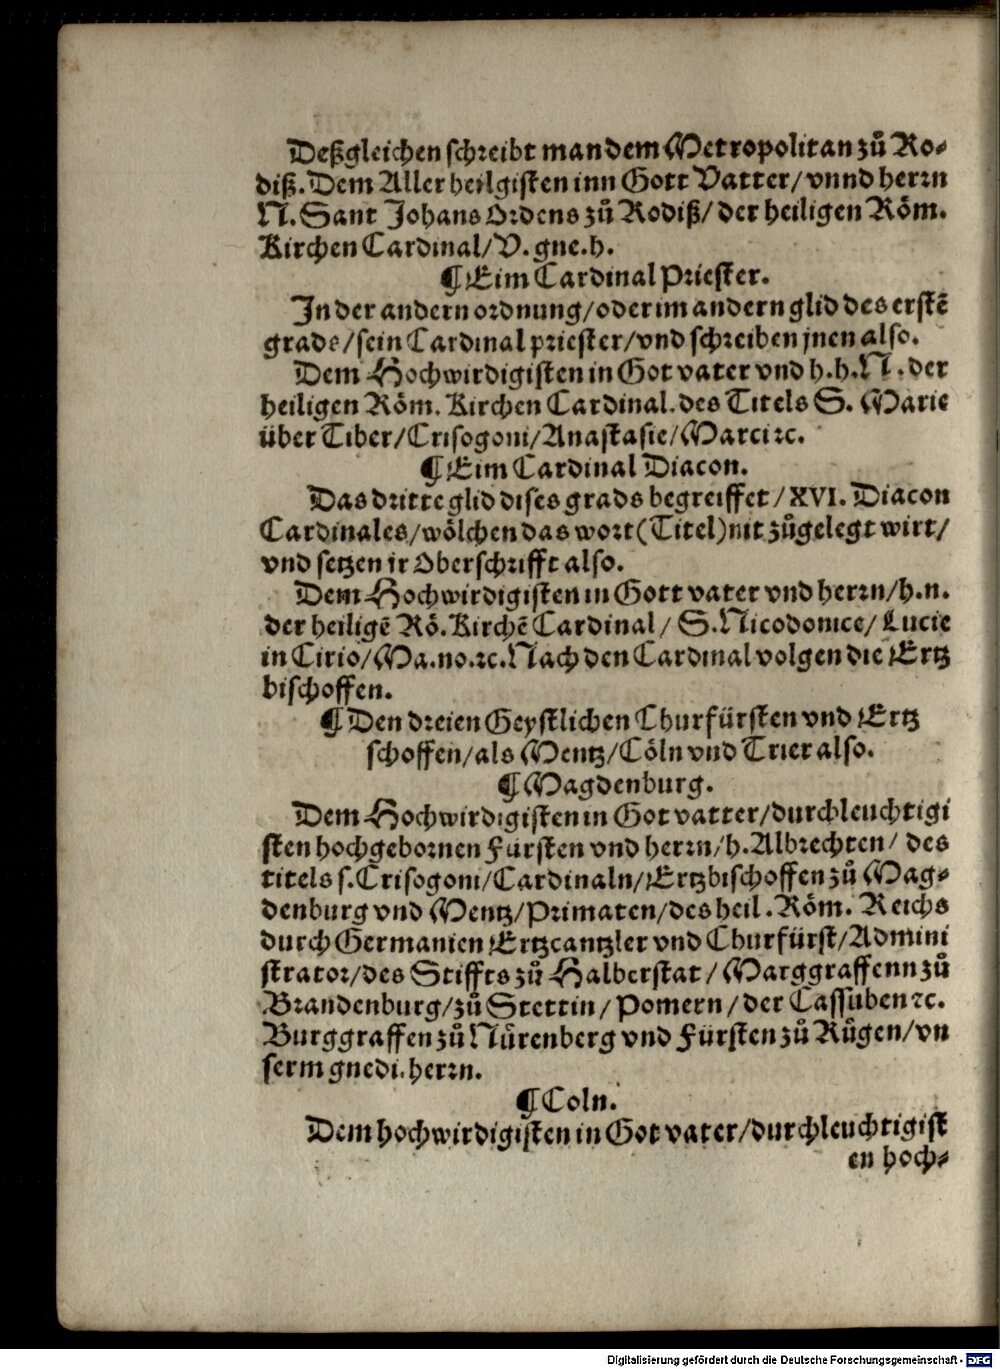 Deßgleichen schreibt man dem Metropolitan zů Ro⸗
diß. Dem Aller heilgisten inn Gott Vatter/ vnnd herrn
N. Sant Johans Ordens zů Rodiß/ der heiligen Röm.
Kirchen Cardinal/ V. gne. h.
¶ Eim Cardinal Priester.
In der andern ordnung/ oder im andern glid des erstē
grads/ sein Cardinal priester/ vnd schreiben jnen also.
Dem Hochwirdigisten in Got vater vnd h. h. N. der
heiligen Röm. Kirchen Cardinal. des Titels S. Marie
über Tiber/ Crisogoni/ Anastasie/ Marci ꝛc.
¶ Eim Cardinal Diacon.
Das dritte glid dises grads begreiffet/ XVI. Diacon
Cardinales/ wölchen das wort (Titel) nit zůgelegt wirt/
vnd setzen ir Oberschrifft also.
Dem Hochwirdigisten in Gott vater vnd herrn/ h. n.
der heiligē Rö. Kirchē Cardinal/ S. Nicodomce/ Lucie
in Cirio/ Ma. no. ꝛc. Nach den Cardinal volgen die Ertz
bischoffen.
¶ Den dreien Geystlichen Churfürsten vnd Ertz
schoffen/ als Mentz/ Cöln vnd Trier also.
¶ Magdenburg.
Dem Hochwirdigisten in Got vatter/ durchleuchtigi
sten hochgebornen Fürsten vnd herrn/ h. Albrechten/ des
titels s. Crisogoni/ Cardinaln/ Ertzbischoffen zů Mag⸗
denburg vnd Mentz/ Primaten/ des heil. Röm. Reichs
durch Germanien Ertzcantzler vnd Churfürst/ Admini
strator/ des Stiffts zů Halberstat/ Marggraffenn zů
Brandenburg/ zů Stettin/ Pomern/ der Cassuben ꝛc.
Burggraffen zů Nůrenberg vnd Fürsten zů Růgen/ vn
serm gnedi. herrn.
¶ Coln.
Dem hochwirdigisten in Got vater/ durchleuchtigist
en hoch⸗
Digitalisierung gefördert durch die Deutsche Forschungsgemeinschaft - DFG